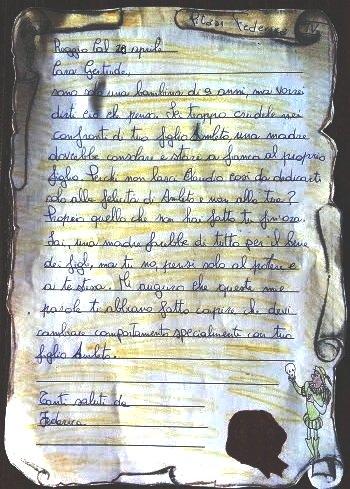 Federica
Reggio Cal 28 aprile
Cara Gertrude,
sono solo una bambina di 9 anni, ma vorrei
dirti ciò che penso. Sei troppo crudele nei
confronti di tuo figlio Amleto, una madre
dovrebbe consolare e stare a fianco al proprio
figlio. Perché non lasci Claudio così da dedicarti
solo alla felicità di Amleto e non alla tua?
Proprio quello che non hai fatto tu finora.
Sai, una madre farebbe di tutto per il bene
dei figli, ma tu no, pensi solo al potere e
a te stessa. Mi auguro che queste mie
parole ti abbiano fatto capire che devi
cambiare comportamento specialmente con tuo
figlio Amleto.
Tanti saluti da
Federica